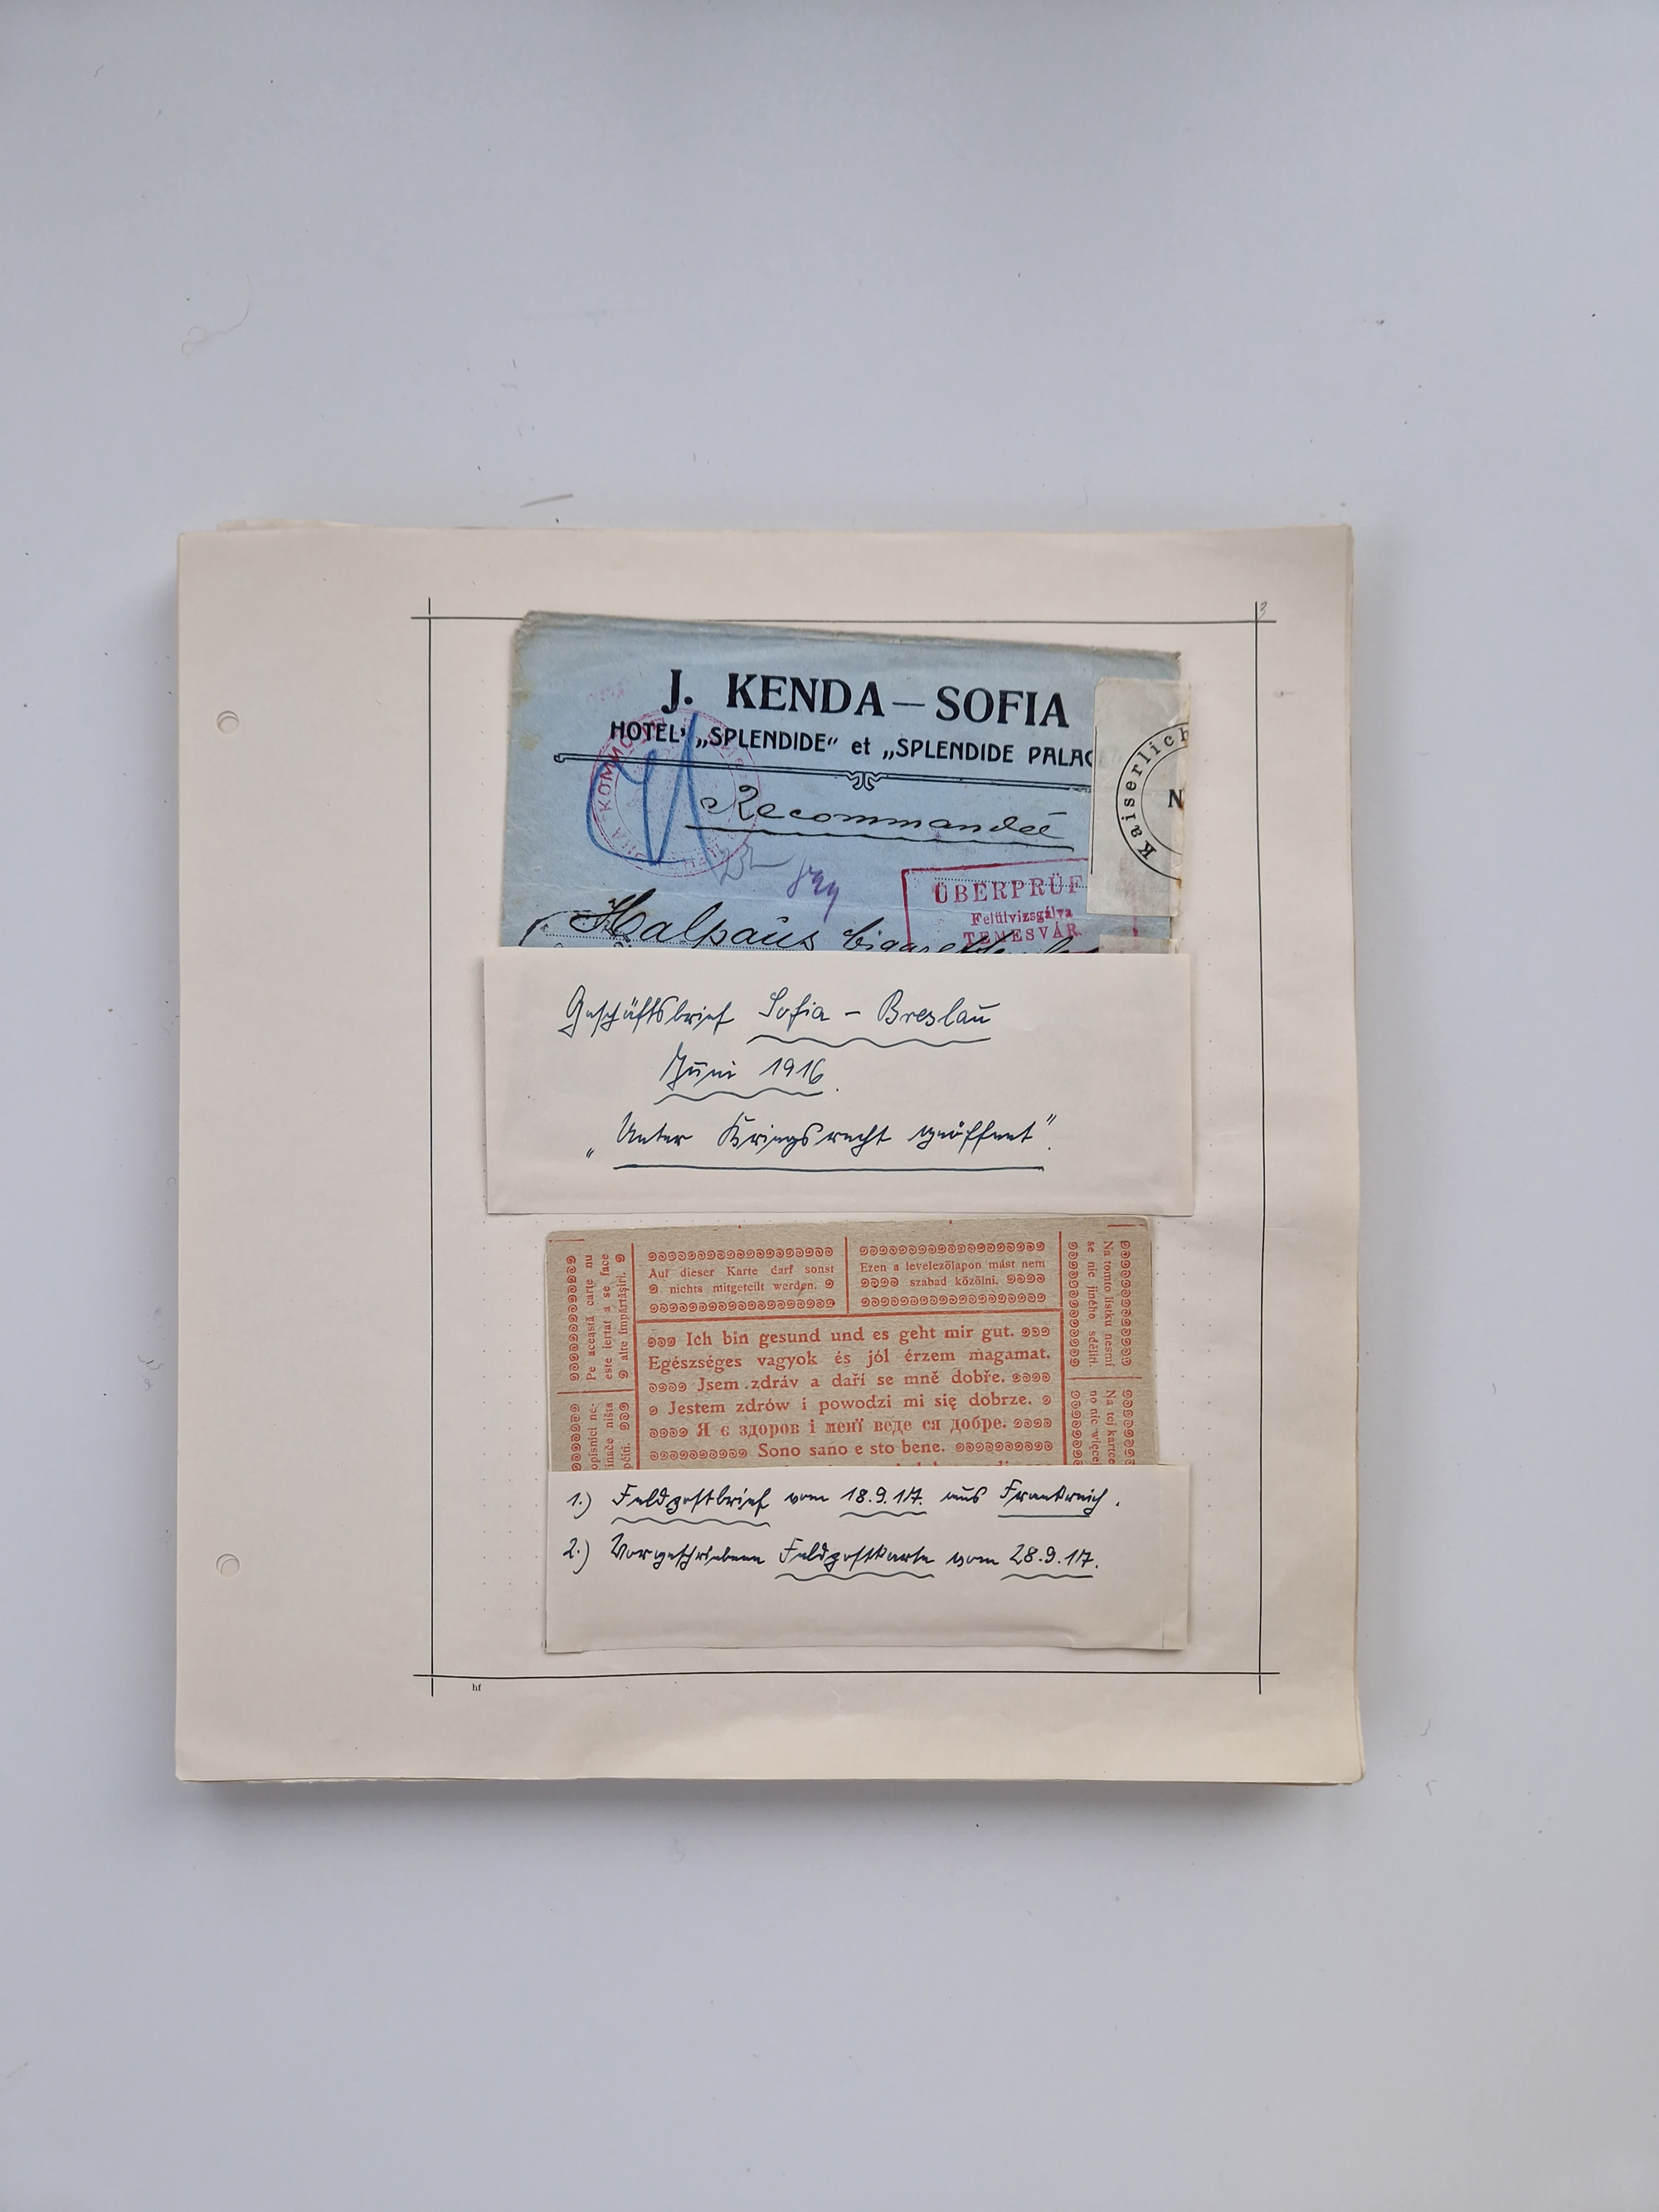 3
J. KENDA — SOFIA
HOTEL „SPLENDIDE“ et „SPLENDIDE PALAC
Recommandée
Kaiserlich
N
КОММ
ÜBERPRÜF
Felülvizsgálva
TEMESVÁR
Halpaus
Geschäftsbrief Sofia – Breslau
Juni 1916.
„Unter Kriegsrecht geöffnet“.
Auf dieser Karte darf sonst
nichts mitgeteilt werden.
Ezen a levelezőlapon mást nem
szabad közölni.
Pe această carte nu
este iertat a se face
alte împărtăşiri.
opisnici ne-
inače ništa
Na tomto lístku nesmí
se nic jiného sděliti.
Na tej kartce
no nic więcej
Ich bin gesund und es geht mir gut.
Egészséges vagyok és jól érzem magamat.
Jsem zdráv a daří se mně dobře.
Jestem zdrów i powodzi mi się dobrze.
Я є здоров і менї веде ся добре.
Sono sano e sto bene.
1.) Feldpostbrief vom 18.9.17. aus Frankreich.
2.) Vorgeschriebene Feldpostkarte vom 28.9.17.
hf